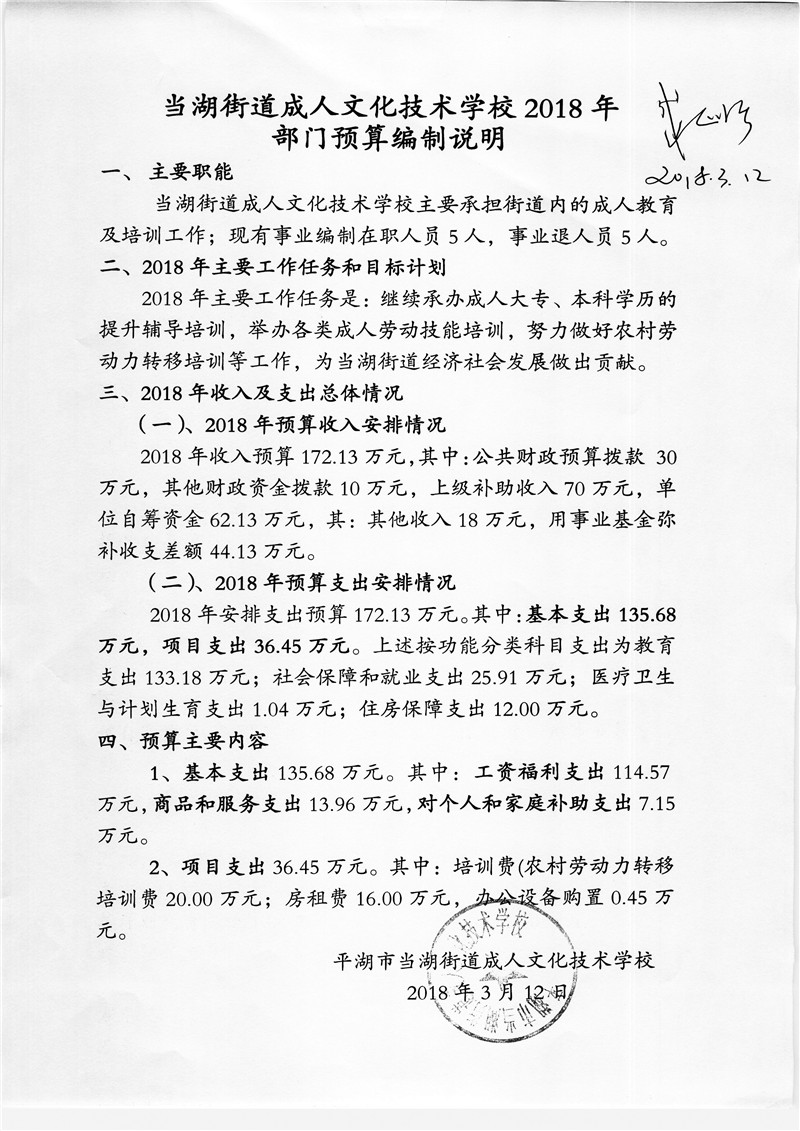 当湖街道成人文化技术学校2018年
部门预算编制说明
2018.3.12
一、主要职能
当湖街道成人文化技术学校主要承担街道内的成人教育
及培训工作；现有事业编制在职人员5人，事业退人员5人。
二、2018年主要工作任务和目标计划
2018年主要工作任务是：继续承办成人大专、本科学历的
提升辅导培训，举办各类成人劳动技能培训，努力做好农村劳
动力转移培训等工作，为当湖街道经济社会发展做出贡献。
三、2018年收入及支出总体情况
（一）、2018年预算收入安排情况
2018年收入预算172.13万元,其中:公共财政预算拨款 30
万元，其他财政资金拨款10万元，上级补助收入70万元，单
位自筹资金62.13万元，其：其他收入18万元，用事业基金弥
补收支差额44.13万元。
（二）、2018年预算支出安排情况
2018年安排支出预算172.13万元。其中:基本支出135.68
万元，项目支出36.45万元。上述按功能分类科目支出为教育
支出133.18万元；社会保障和就业支出25.91万元；医疗卫生
与计划生育支出1.04万元；住房保障支出12.00万元。
四、预算主要内容
1、基本支出135.68万元。其中：工资福利支出114.57
万元,商品和服务支出13.96万元,对个人和家庭补助支出7.15
万元。
2、项目支出36.45万元。其中：培训费(农村劳动力转移
培训费20.00万元；房租费16.00万元，办公设备购置0.45万
元。
平湖市当湖街道成人文化技术学校
2018年3月12日